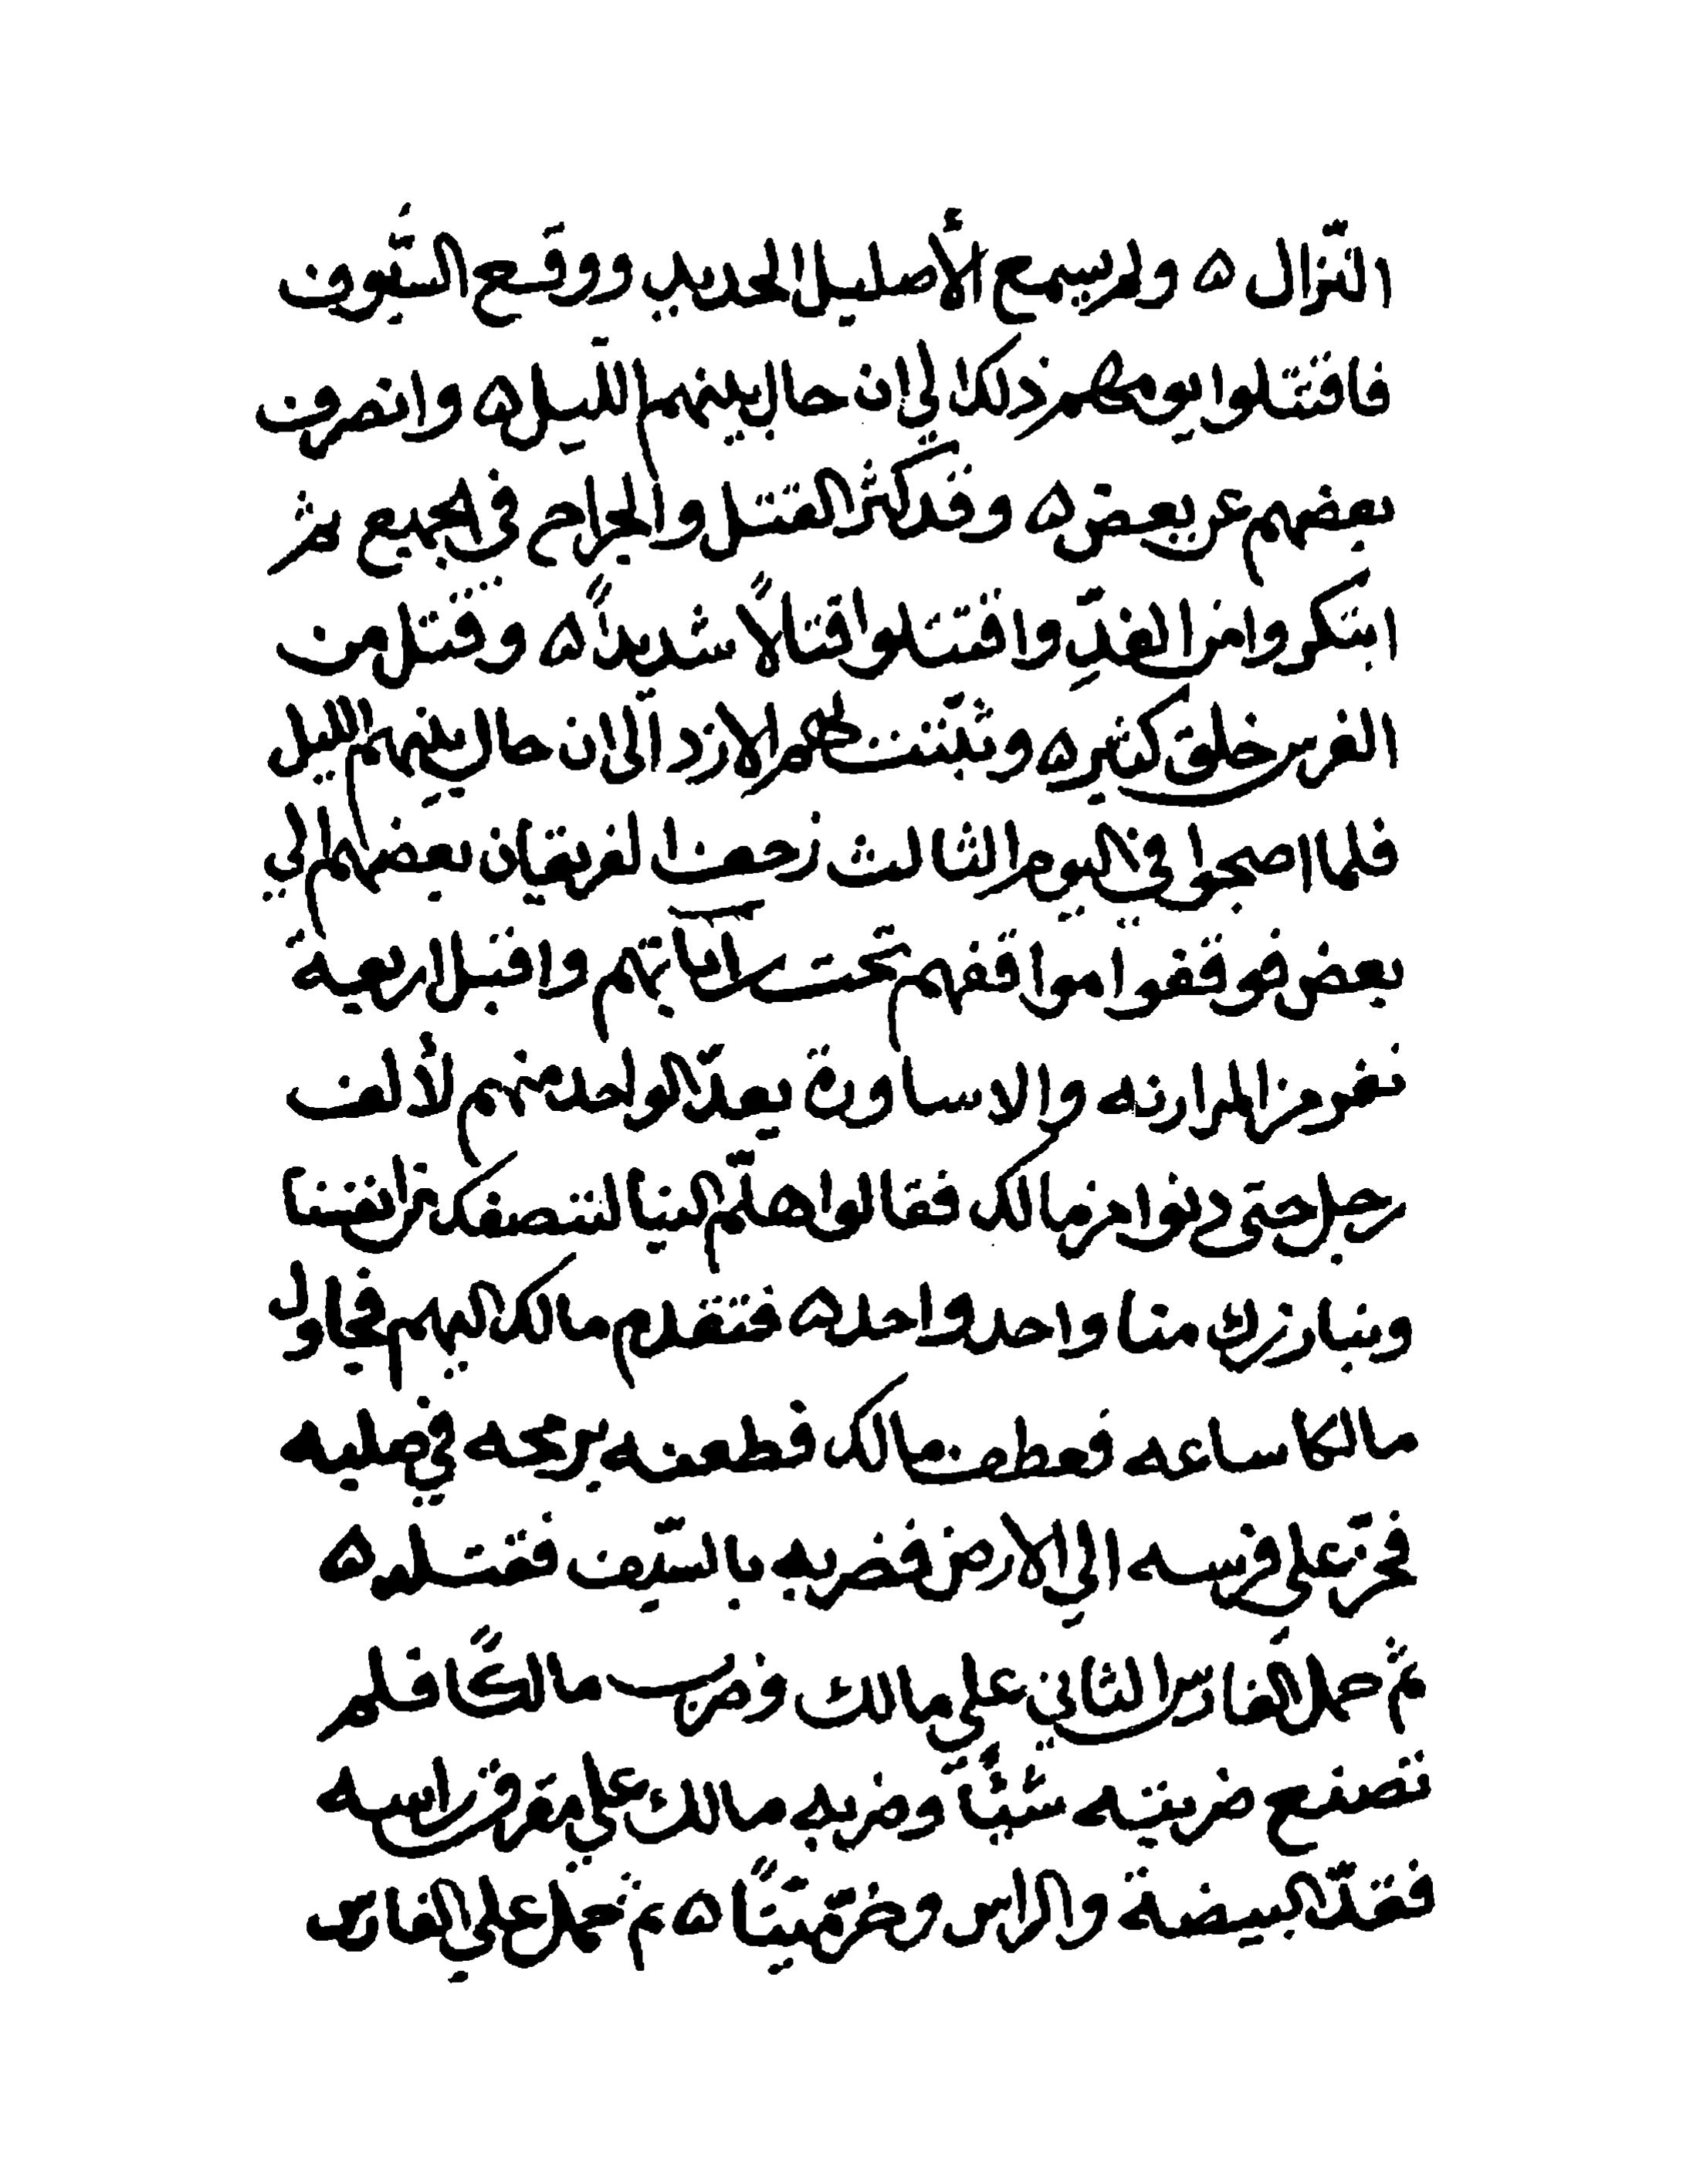 النّزال ۵ ولم يسمع الأصليل الحديد ووقع السّيوف
فاقتتلوا يومهم ذلك الي ان حال بينهم اللّيل ۵ وانصرف
بعضهم عن بعض ۵ وقد كثر القتل والجراح في الجميع ثم
ابتكروا من الغدِ واقتتلوا قتالاً شديداً ۵ وقتل من
الفرس خلق كثير ۵ وثبّتت لهم الازد الى ان حال بينهم الليل
فلما اصبحوا في اليوم الثالث زحف الفريقان بعضهم الي
بعض فوقفوا مواقفهم تحت راياتهم واقبل اربعة
نفر من المرازنه والاساورة يعدّ الواحد منهم لألف
رجل حتى دنوا من مالك فقالوا هلمّ الينا لننصفك من انفسنا
ونبارزك منا واحد واحد ۵ فتقدم مالك اليهم فجاول
مالكا ساعه فعطف مالك فطعنه برمحه في صلبه
فخرّ عن فرسه الي الارض فضربه بالسّيف فقتله ۵
ثم حمل الفارس الثاني علي مالك وضرب مالكاً فلم
تصنع ضربته شيئاً وضربه مالك علي مفرق راسه
فقدّ البيضة والراس وخرّ ميّتاً ۵ ثم حمل علي الفارس